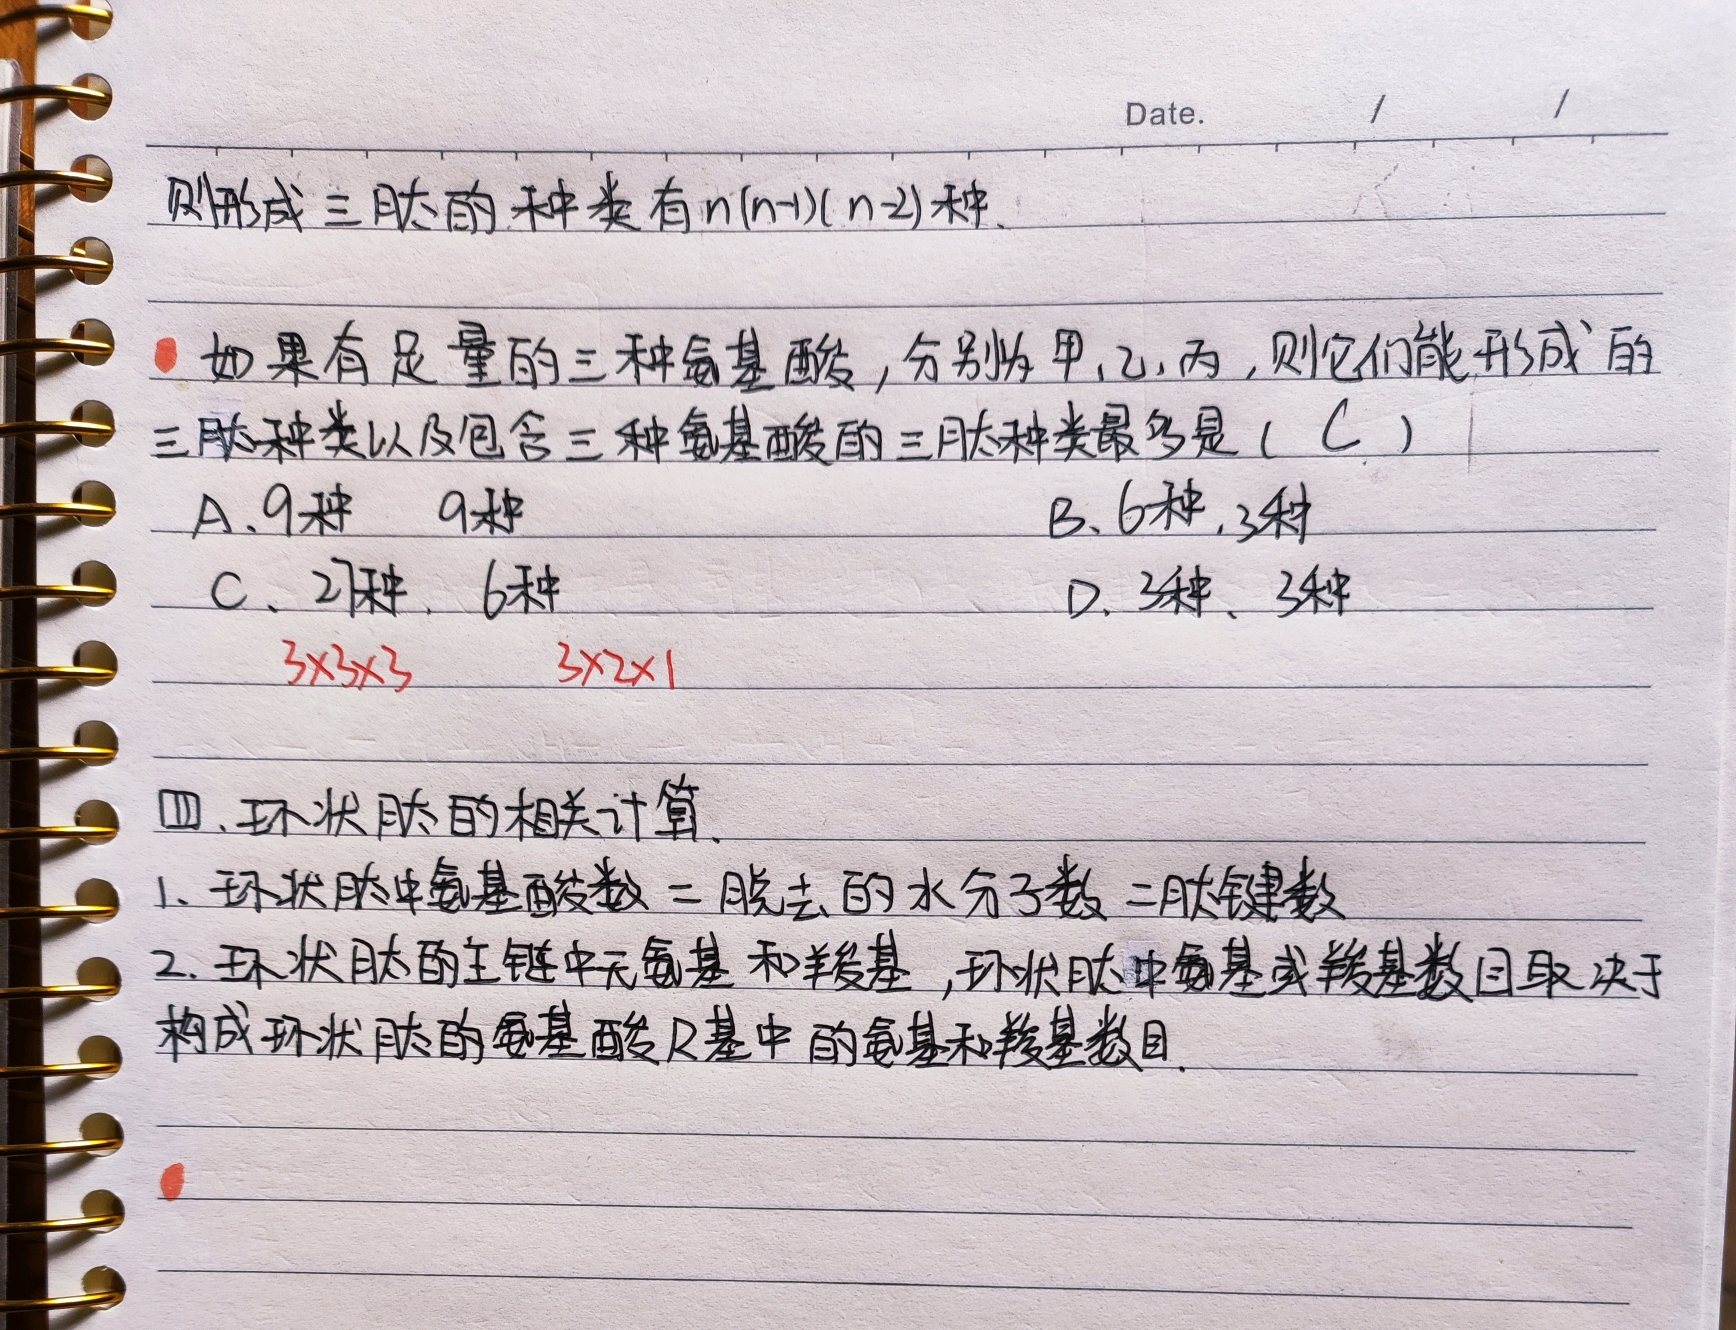 Date. / /
则形成三肽的种类有n(n-1)(n-2)种.
如果有足量的三种氨基酸,分别为甲、乙、丙,则它们能形成的
三肽种类以及包含三种氨基酸的三肽种类最多是( C )
A.9种 9种 B、6种.3种
C、27种. 6种 D.3种、3种
3×3×3 3×2×1
四.环状肽的相关计算.
1、环状肽中氨基酸数=脱去的水分子数=肽键数
2.环状肽的主链中无氨基和羧基,环状肽中氨基或羧基数目取决于
构成环状肽的氨基酸R基中的氨基和羧基数目.